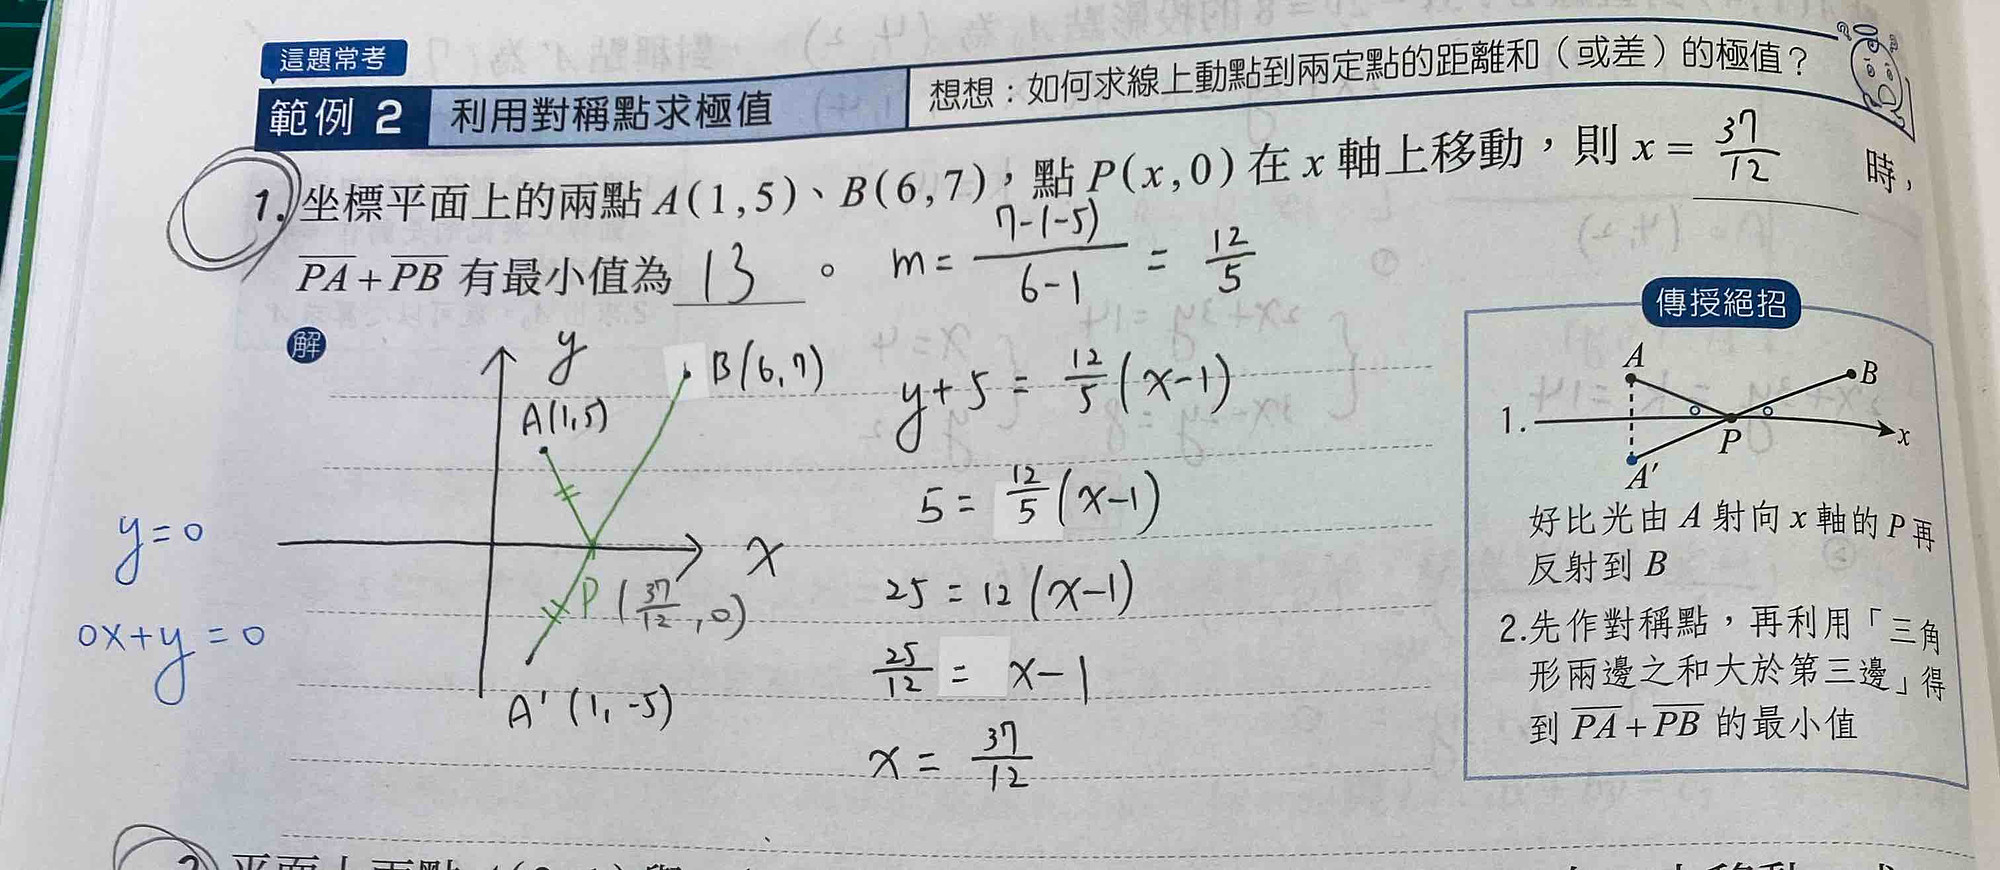 這題常考
範例 2 利用對稱點求極值 想想：如何求線上動點到兩定點的距離和（或差）的極值？
1. 坐標平面上的兩點 A(1,5)、B(6,7)，點 P(x,0) 在 x 軸上移動，則 x = 37/12 時，
PA + PB 有最小值為 13 。
m = 7-(-5)/6-1 = 12/5
解
y
B(6,7)
A(1,5)
x
P (37/12, 0)
A'(1,-5)
y=0
0x+y=0
y+5 = 12/5 (x-1)
5 = 12/5 (x-1)
25 = 12 (x-1)
25/12 = x-1
x = 37/12
傳授絕招
1.
A
B
P
x
A'
好比光由 A 射向 x 軸的 P 再
反射到 B
2.先作對稱點，再利用「三角
形兩邊之和大於第三邊」得
到 PA + PB 的最小值